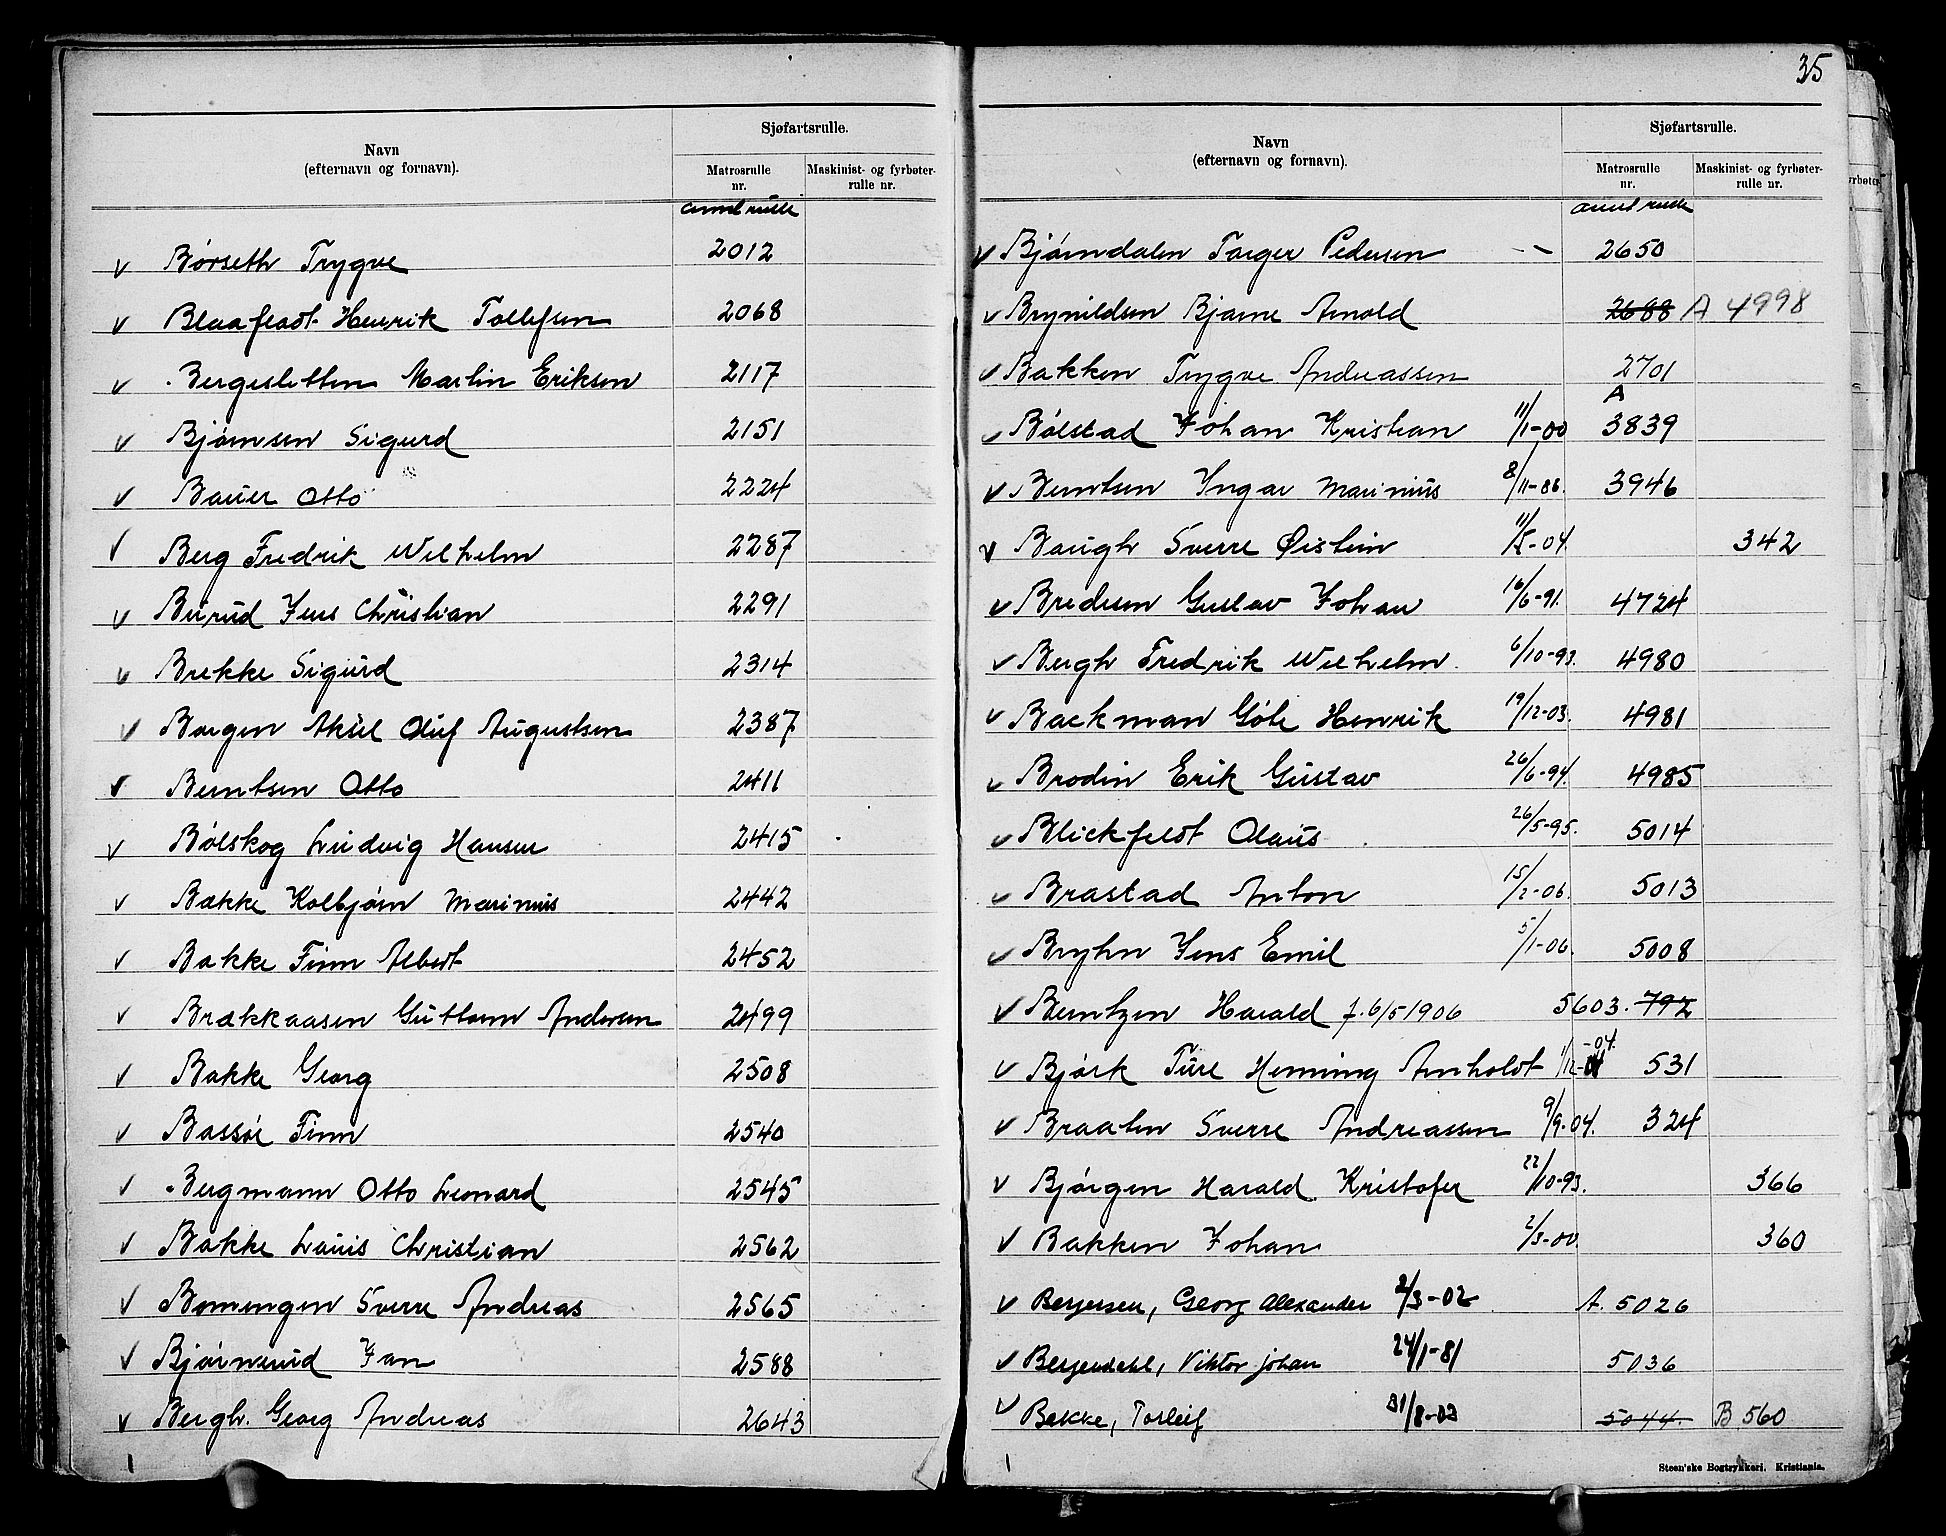 Navn
(efternavn og fornavn).
Sjøfartsrulle.
Matrosrulle nr.
Maskinist- og fyrbøter-rulle nr.
annot rulle
v Børseth Trygve 2012
v Blaafladt Henrik Tollefsen 2068
v Bergesletten Martin Eriksen 2117
v Bjørnsen Sigurd 2151
v Bauer Otto 2224
v Berg Fredrik Wilhelm 2287
v Burud Jens Christian 2291
v Brekke Sigurd 2314
v Borgen Aksel Oluf Augustsen 2387
v Berntsen Otto 2411
v Bølskog Ludvig Hansen 2415
v Bakke Kolbjørn Marinius 2442
v Bakke Finn Albert 2452
v Brækkaasen Guttorm Andersen 2499
v Bakke Georg 2508
v Bassøe Finn 2540
v Bergmann Otto Leonard 2545
v Bakke Louis Christian 2562
v Bomengen Sverre Andreas 2565
v Bjørnerud Jan 2588
v Bergh. Georg Andreas 2643
35
Navn
(efternavn og fornavn).
Sjøfartsrulle.
Matrosrulle nr.
Maskinist- og fyrbøter-rulle nr.
annot rulle
v Bjørndalen Torger Pedersen - - 2650
v Brynildsen Bjarne Arnold 2688 A 4998
v Bakken Trygve Andreassen 2701
v Bølstad Johan Kristian 11/1-00 A 3839
v Berntsen Ingar Marinius 8/11-86. 3946
v Baugh Sverre Øistein 11/5-04. 342
v Bredesen Gustav Johan 16/6-91. 4724
v Bergh Fredrik Wilhelm. 6/10-93. 4980
v Backman Göte Henrik 19/12-03. 4981
v Brodin Erik Gustav 26/6-94. 4985
v Blickfeldt Olaus 26/5-95. 5014
v Brastad Anton 15/2-06. 5013
v Bryhn Jens Emil 5/1-06. 5008
v Berntzen Harald f. 6/5 1906 5603. 792
v Bjørk Ture Henning Arnholdt 1/12-04. 531
v Braaten Sverre Andreassen 9/9-04. 324
v Bjørgen Harald Kristofer 22/10-93. 366
v Bakken Johan 2/3-00. 360
v Bergersen, Georg Alexander 2/3-02 A. 5026
v Bergendahl, Viktor Johan 24/1-81 5036
v Bakke, Torleif 31/8-03 5044. B, 560
Steen'ske Bogtrykkeri. Kristiania.